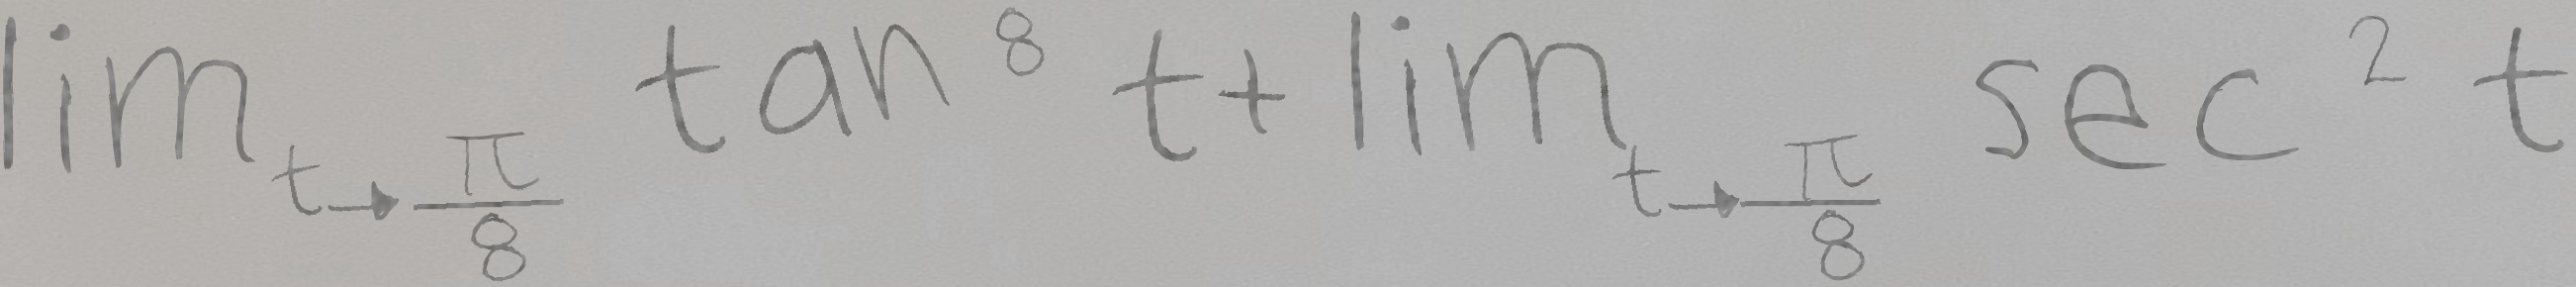 \lim_{t \to \frac{\pi}{8}} \tan^8 t + \lim_{t \to \frac{\pi}{8}} \sec^2 t